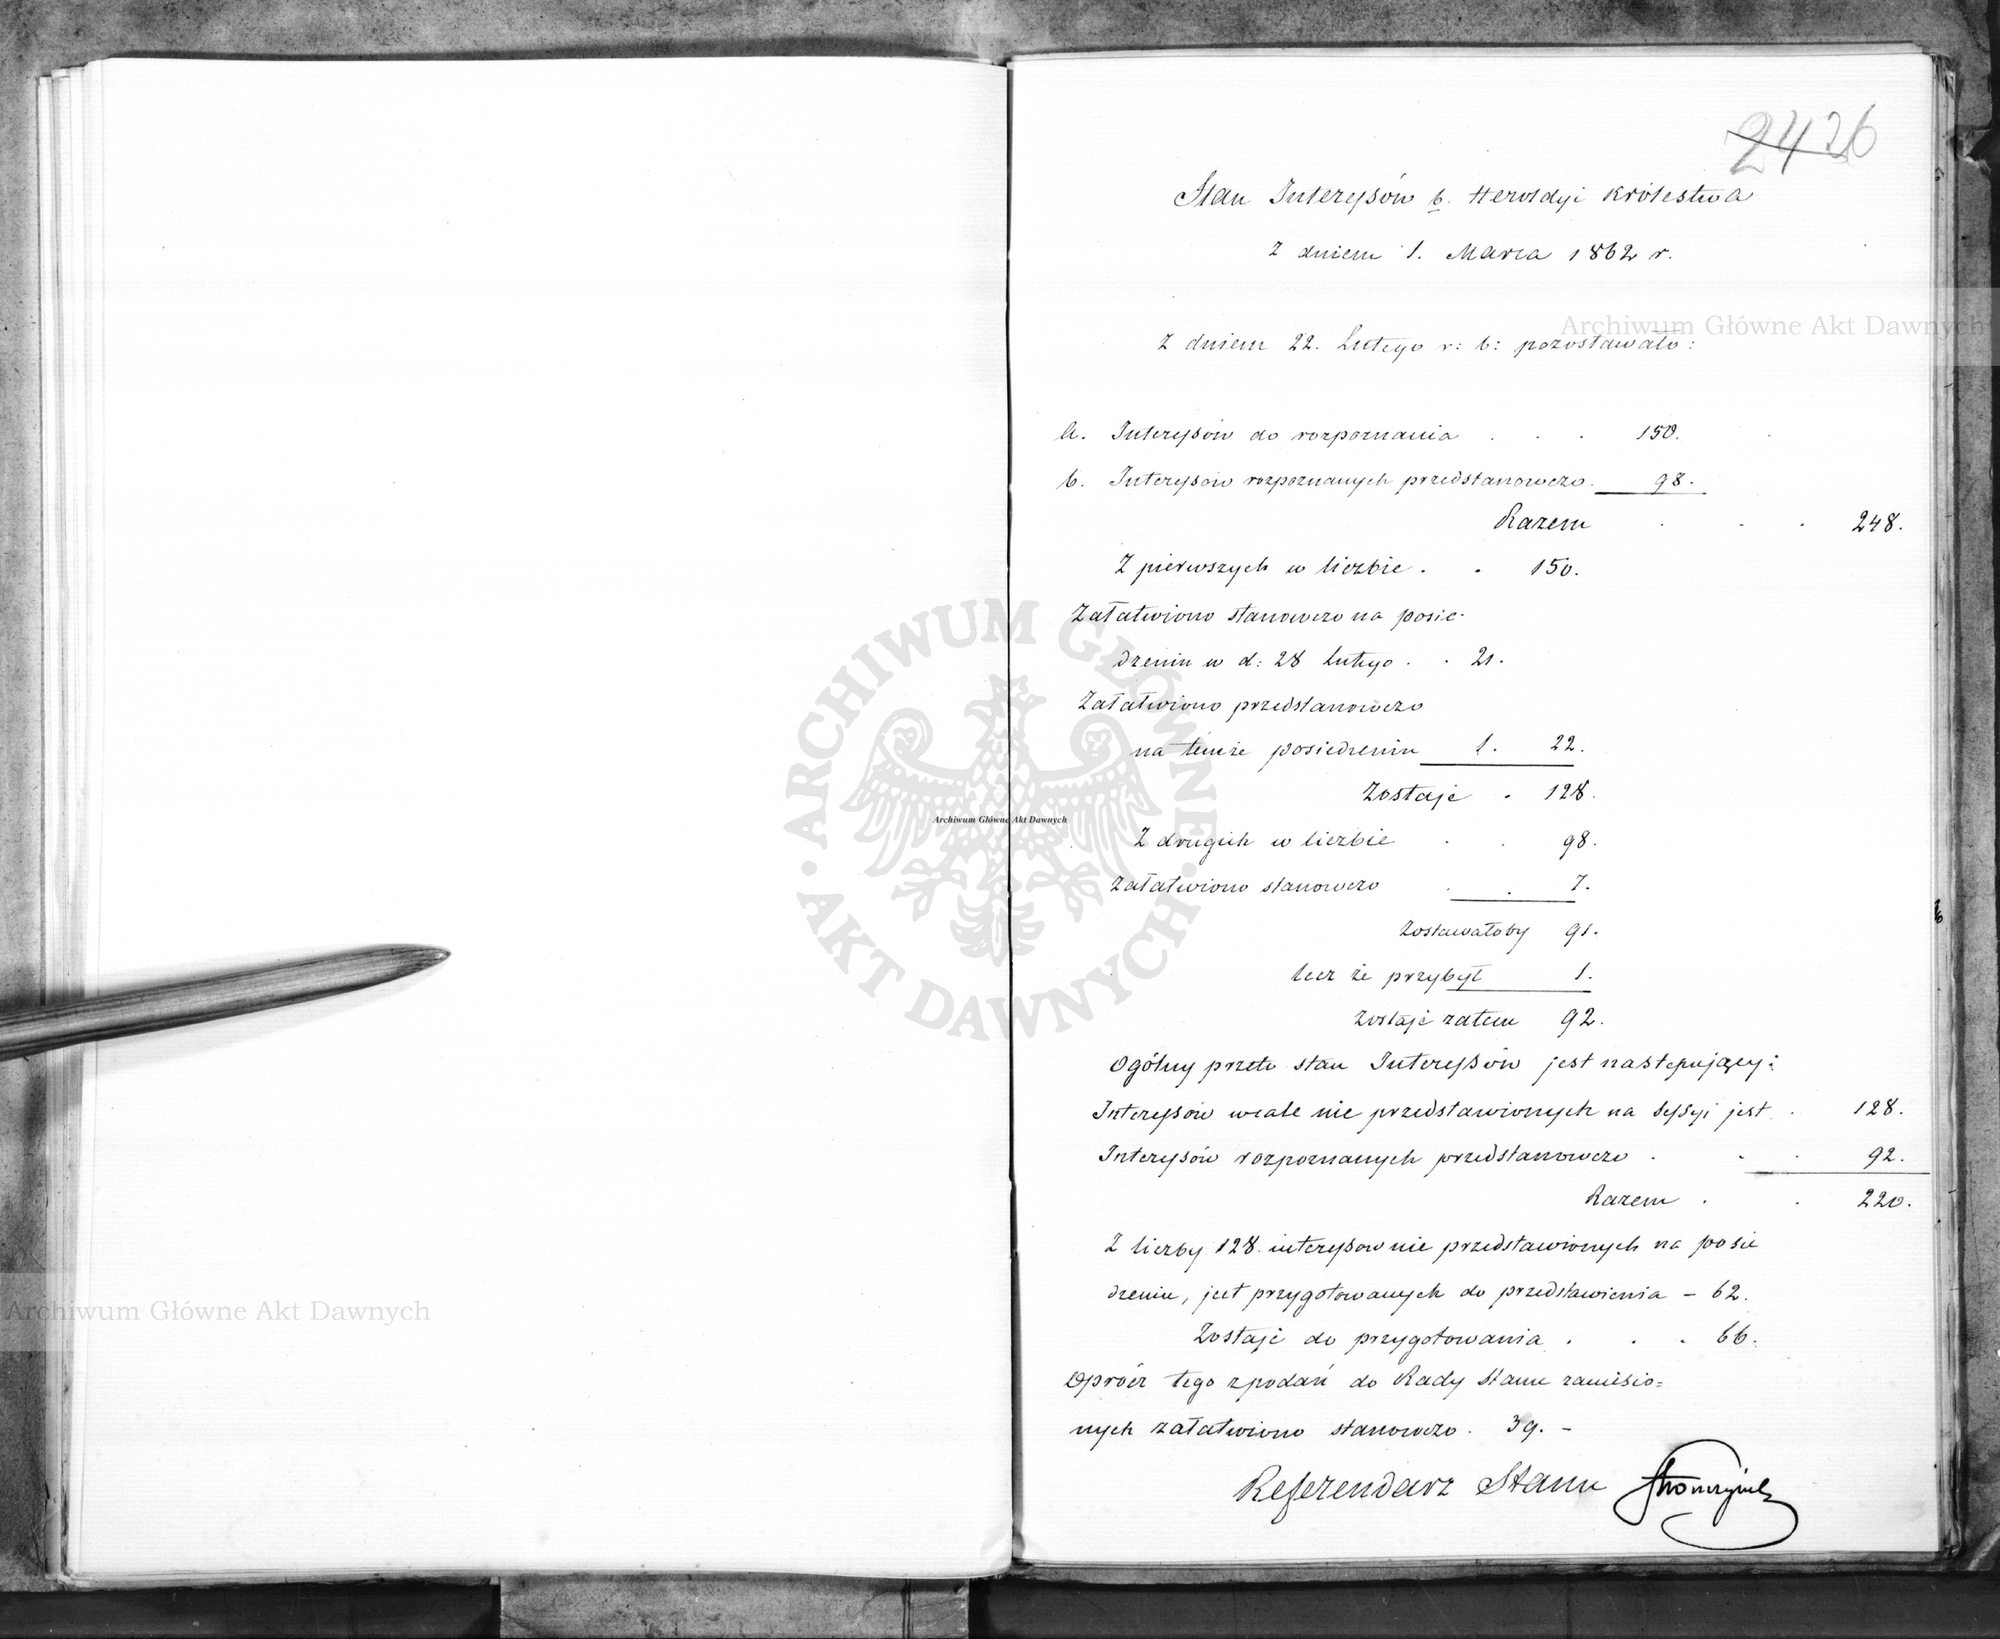 24 26
Stan Interessów b. Heroldyi Królestwa
z dniem 1. Marca 1862 r.
Z dniem 22. Lutego r: b: pozostawało:
a. Interessów do rozpoznania . . . 150.
b. Interessów rozpoznanych przedstanowczo. 98.
Razem . . . 248.
Z pierwszych w liczbie . . 150.
Załatwiono stanowczo na posie-
dzeniu w d: 28 Lutego . . 21.
Załatwiono przedstanowczo
na temże posiedzeniu 1. 22.
Zostaje . 128.
Z drugich w liczbie . . 98.
Załatwiono stanowczo . . 7.
zostawałoby 91.
lecz że przybył 1.
zostaje zatem 92.
Ogólny przeto stan Interessów jest następujący:
Interessów wcale nie przedstawionych na Sessyi jest . 128.
Interessów rozpoznanych przedstanowczo . . . 92.
Razem . . 220.
Z liczby 128. interessów nie przedstawionych na posie
dzeniu, jest przygotowanych do przedstawienia – 62.
Zostaje do przygotowania . . . 66.
Oprócz tego z podań do Rady Stanu zaniesio=
nych załatwiono stanowczo . 39. –
Referendarz Stanu Stronczyński
Archiwum Główne Akt Dawnych
ARCHIWUM GŁÓWNE · AKT DAWNYCH ·
Archiwum Główne Akt Dawnych
Archiwum Główne Akt Dawnych